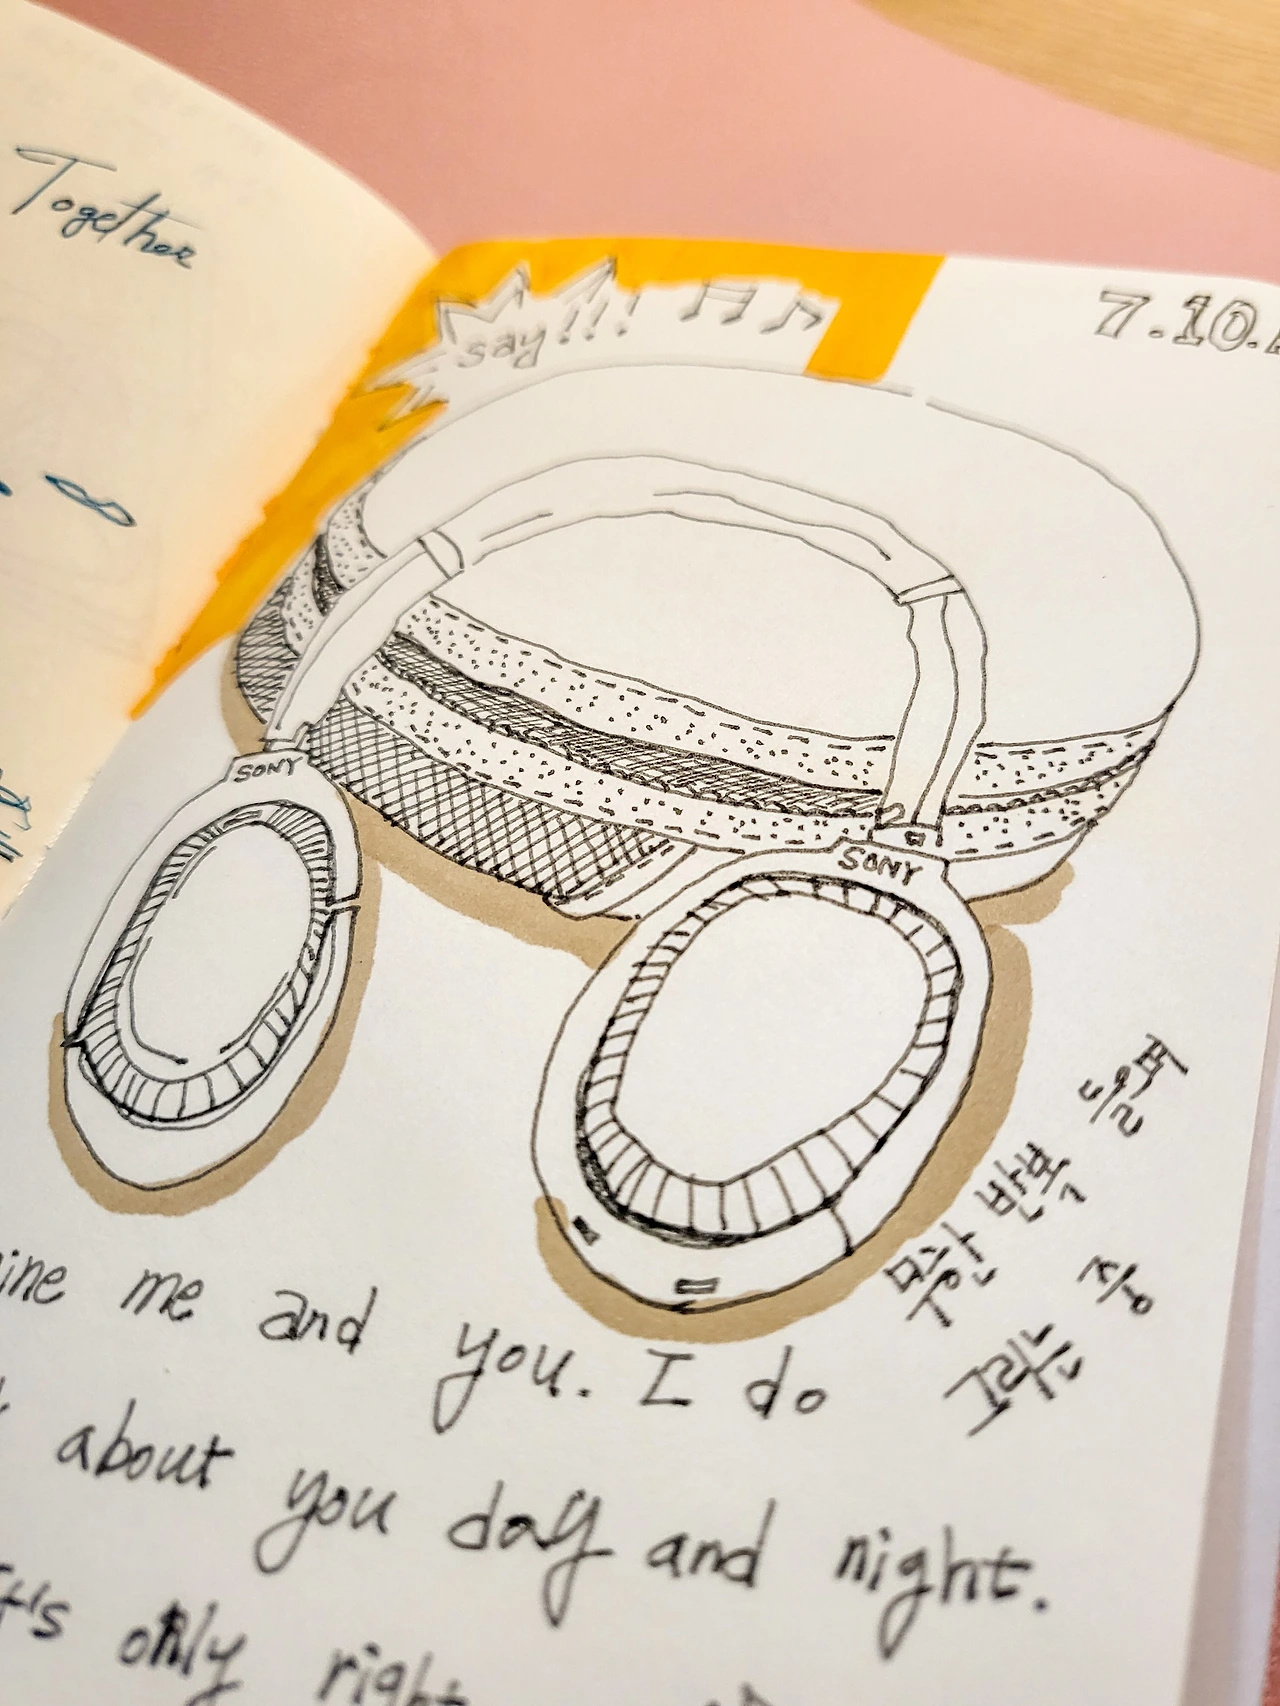 Together
say!!!
7.10.
SONY
SONY
무한 반복
그리는 중
me and you. I do
about you day and night.
It's only right